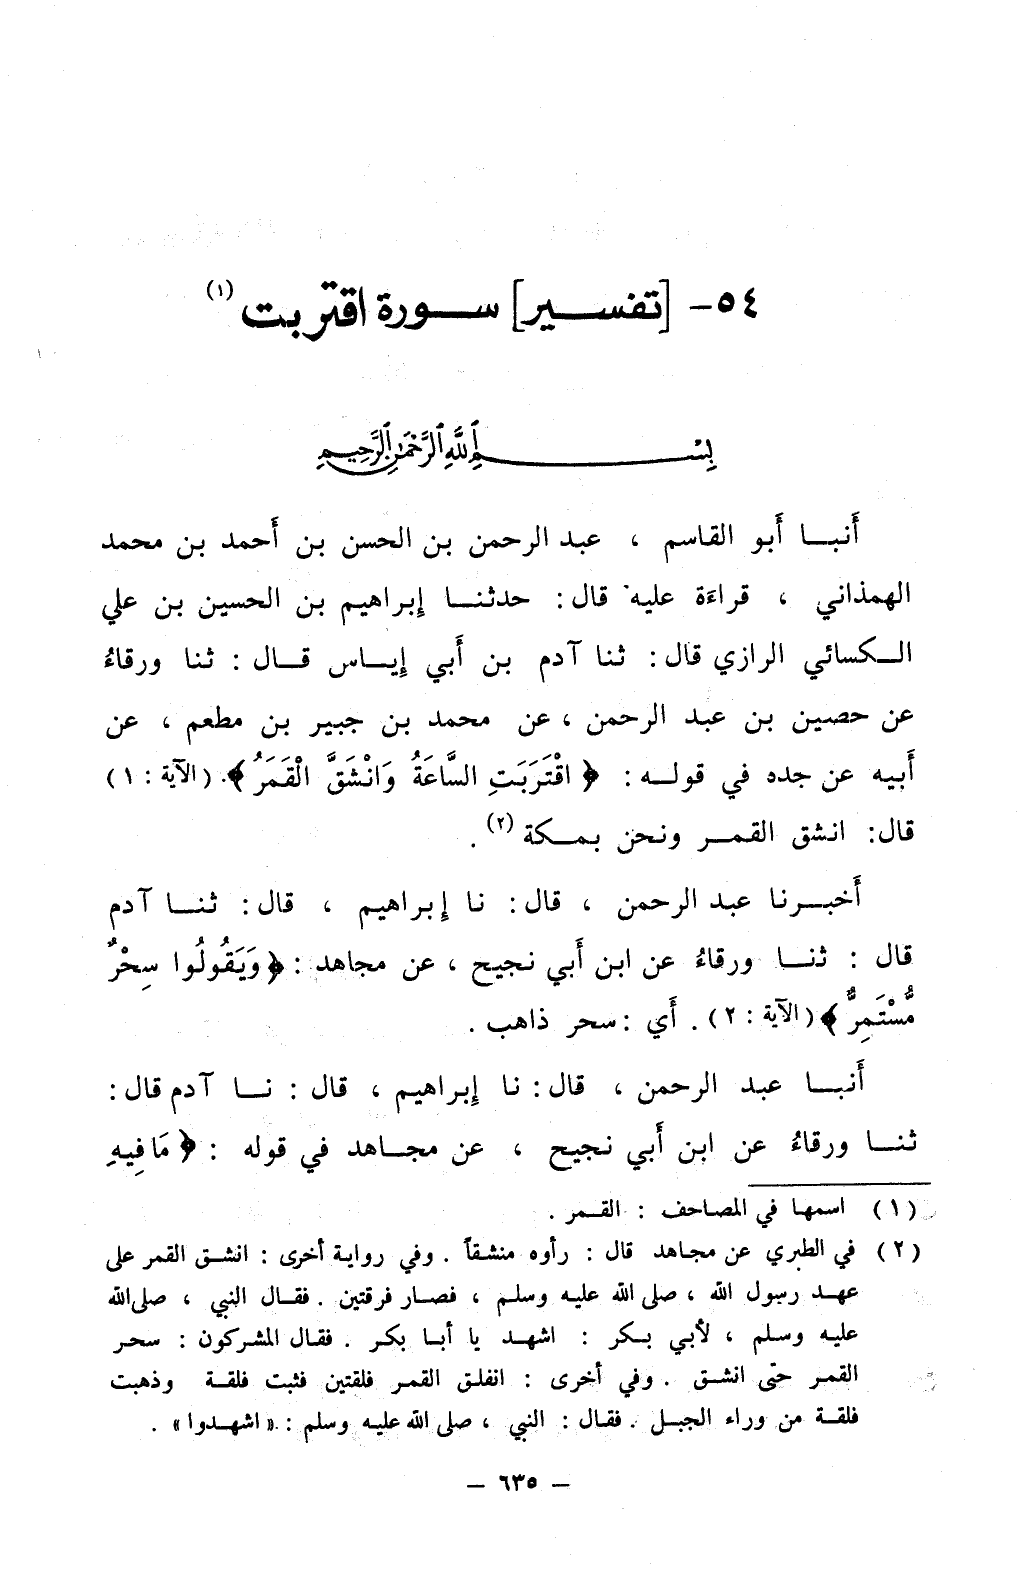 ٥٤- [تفسير] سورة اقتربت (١)
بسم الله الرحمن الرحيم
أنبا أبو القاسم ، عبد الرحمن بن الحسن بن أحمد بن محمد
الهمذاني ، قراءة عليه قال : حدثنا إبراهيم بن الحسين بن علي
الكسائي الرازي قال : ثنا آدم بن أبي إياس قال : ثنا ورقاءُ
عن حصين بن عبد الرحمن ، عن محمد بن جبير بن مطعم ، عن
أبيه عن جده في قوله : ﴿ اقْتَرَبَتِ السَّاعَةُ وَانْشَقَّ الْقَمَرُ ﴾. (الآية : ١)
قال: انشق القمر ونحن بمكة (٢) .
أخبرنا عبد الرحمن ، قال : نا إبراهيم ، قال : ثنا آدم
قال : ثنا ورقاءُ عن ابن أبي نجيح ، عن مجاهد : ﴿ وَيَقُولُوا سِحْرٌ
مُّسْتَمِرٌّ ﴾ (الآية : ٢) . أَي : سحر ذاهب .
أَنبا عبد الرحمن ، قال : نا إبراهيم ، قال : نا آدم قال :
ثنا ورقاءُ عن ابن أَبي نجيح ، عن مجاهد في قوله : ﴿ مَا فِيهِ
(١) اسمها في المصاحف : القمر .
(٢) في الطبري عن مجاهد قال : رأوه منشقاً . وفي رواية أخرى : انشق القمر على
عهد رسول الله ، صلى الله عليه وسلم ، فصار فرقتين . فقال النبي ، صلى الله
عليه وسلم ، لأبي بكر : اشهد يا أبا بكر . فقال المشركون : سحر
القمر حتى انشق . وفي أخرى : انفلق القمر فلقتين فثبت فلقة وذهبت
فلقة من وراء الجبل . فقال : النبي ، صلى الله عليه وسلم : « اشهدوا » .
– ٦٣٥ –